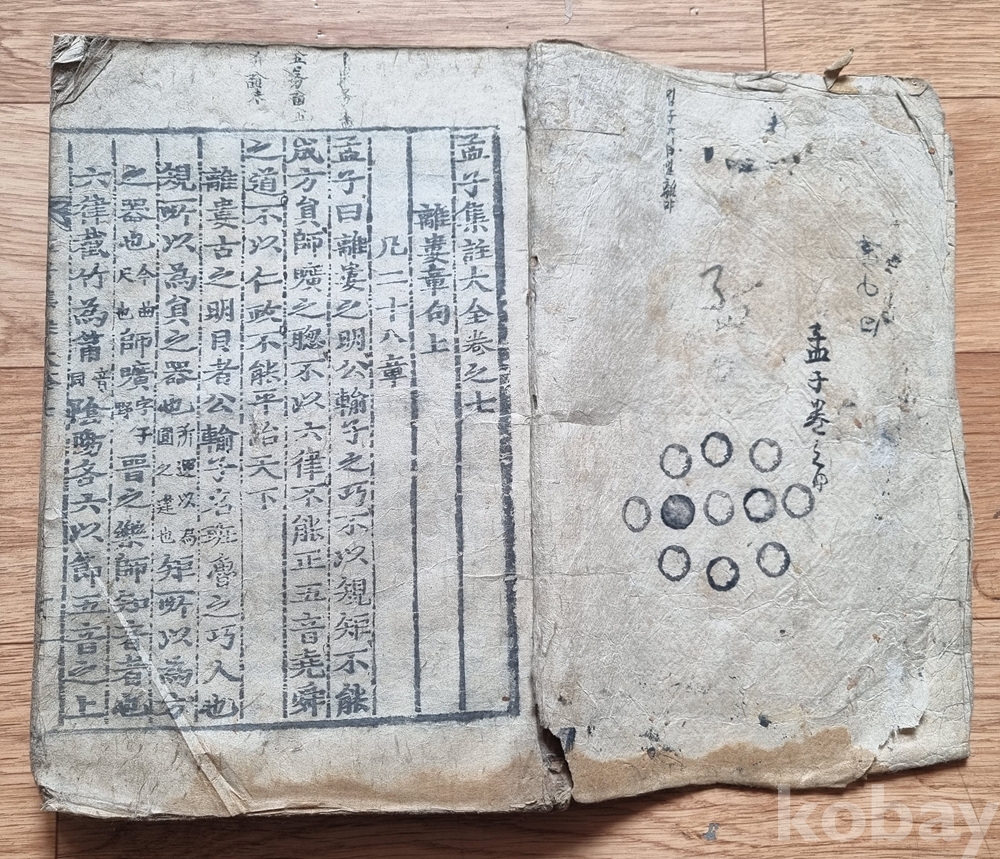 孟子卷之四
孟子集註大全卷之七
離婁章句上
凡二十八章
孟子曰離婁之明公輸子之巧不以規矩不能
成方員師曠之聰不以六律不能正五音堯舜
之道不以仁政不能平治天下
離婁古之明目者公輸子名班魯之巧人也
規所以為員之器也所運以為圓之
矩所以為方
之器也今曲尺也師曠字子野晋之樂師知音者也
六律截竹為筩音同陰陽各六以節五音之上
kobay